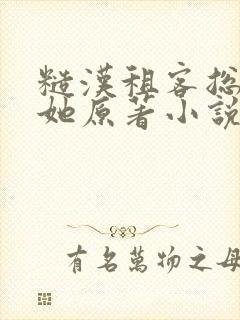 糙漢租客總
她原著小說
有名萬物之母